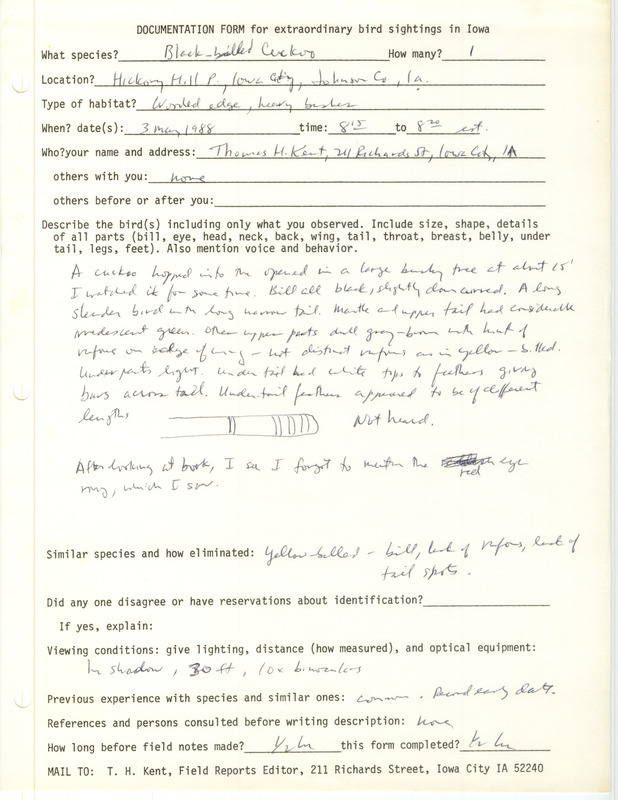 DOCUMENTATION FORM for extraordinary bird sightings in Iowa
What species? Black-billed Cuckoo How many? 1
Location? Hickory Hill P., Iowa City, Johnson Co, Ia.
Type of habitat? Wooded edge, heavy bushes
When? date(s): 3 May 1988 time: 8 15 to 8 20 est.
Who?your name and address: Thomas H. Kent, 211 Richards St, Iowa City, IA
others with you: none
others before or after you:
Describe the bird(s) including only what you observed. Include size, shape, details
of all parts (bill, eye, head, neck, back, wing, tail, throat, breast, belly, under
tail, legs, feet). Also mention voice and behavior.
A cuckoo hopped into the opened in a large bushy tree at about 15'
I watched it for some time. Bill all black, slightly down curved. A long
slender bird with long narrow tail. Mantle and upper tail had considerable
irredescent green. Other upper parts dull gray-brown with hint of
rufous on edge of wing - not distinct rufous as in yellow-billed.
Underparts light. Under tail had white tips to feathers giving
bars across tail. Undertail feathers appeared to be of different
lengths Not heard.
After looking at book, I see I forgot to mention the red eye
ring, which I saw.
Similar species and how eliminated: Yellow-billed - bill, lack of rufous, lack of
tail spots.
Did any one disagree or have reservations about identification?
If yes, explain:
Viewing conditions: give lighting, distance (how measured), and optical equipment:
In shadow, 30 ft, 10x binoculars
Previous experience with species and similar ones: common. Record early date.
References and persons consulted before writing description: none
How long before field notes made? 1/2 hr this form completed? 1/2 hr
MAIL TO: T. H. Kent, Field Reports Editor, 211 Richards Street, Iowa City IA 52240